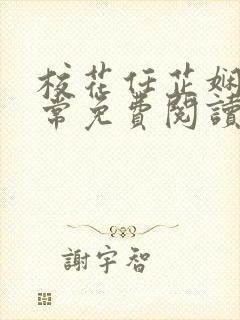 校花任芷娴
常免費閱讀
謝宇智